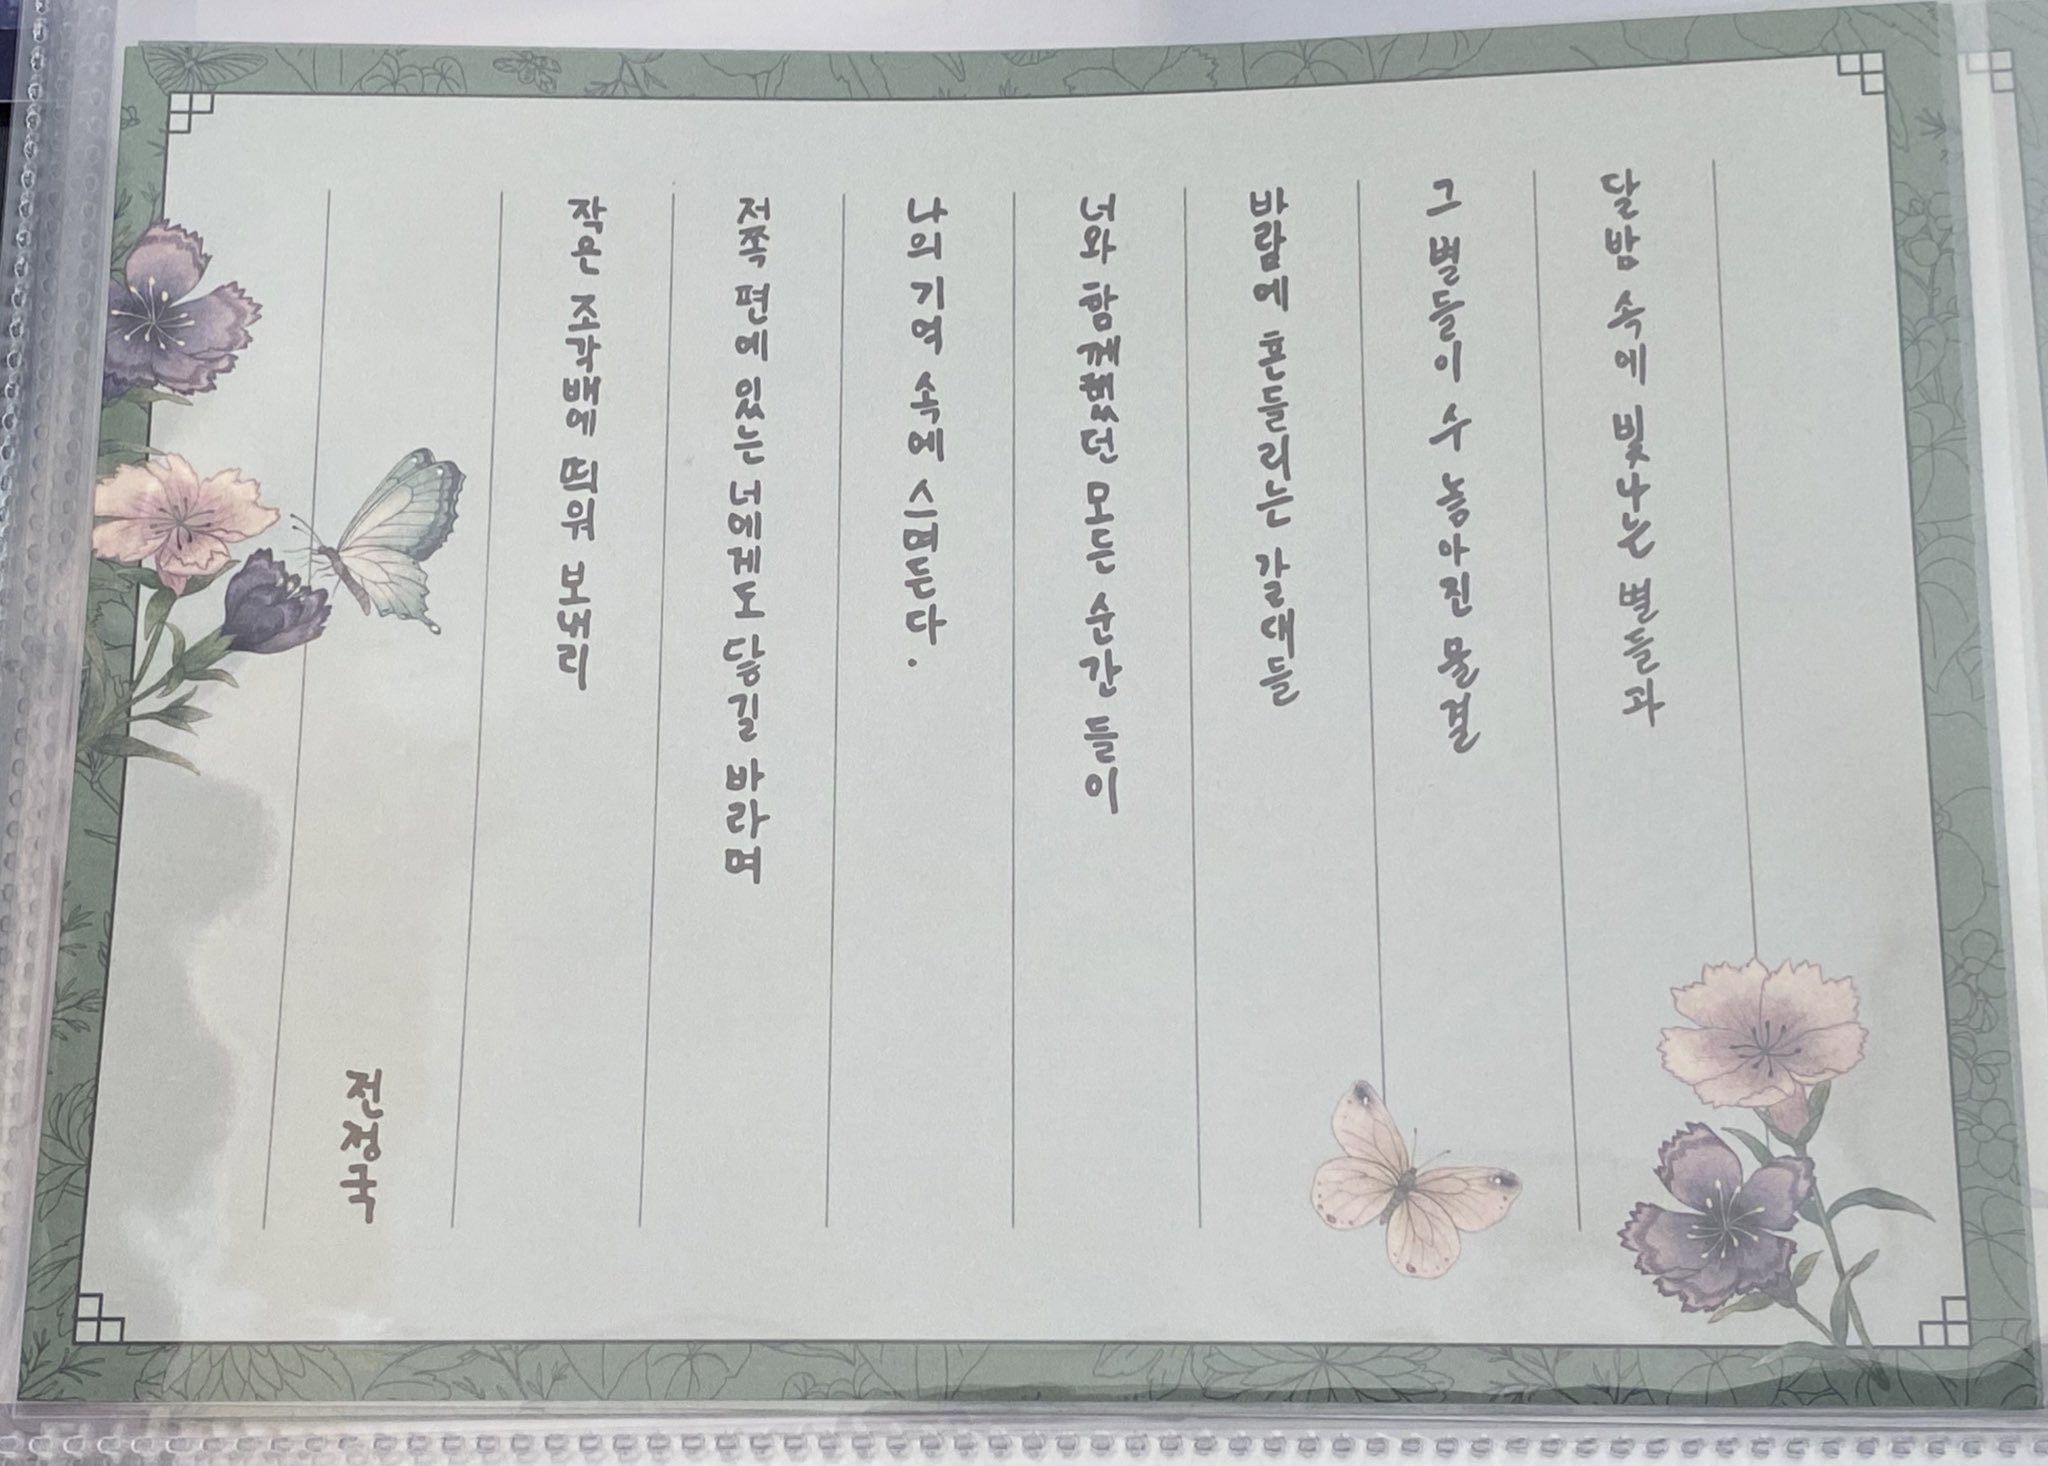 달밤 속에 빛나는 별들과
그 별들이 수 놓아진 물결
바람에 흔들리는 갈대들
너와 함께했던 모든 순간 들이
나의 기억 속에 스며든다.
저쪽 편에 있는 너에게도 닿길 바라며
작은 조각배에 띄워 보내리
전정국